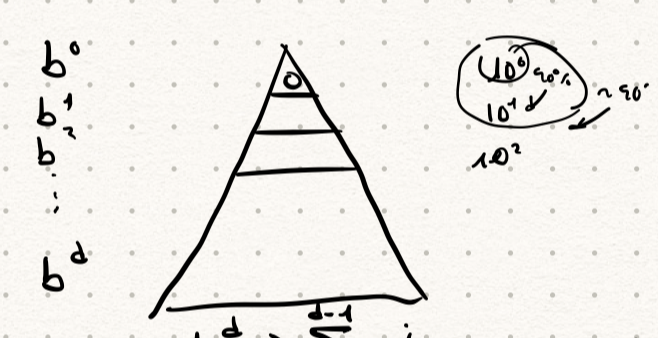 b⁰
b¹
b²
⋮
b^d
0
10⁰
90%
10¹
~90%
10²
b^d > ∑ d-1 i